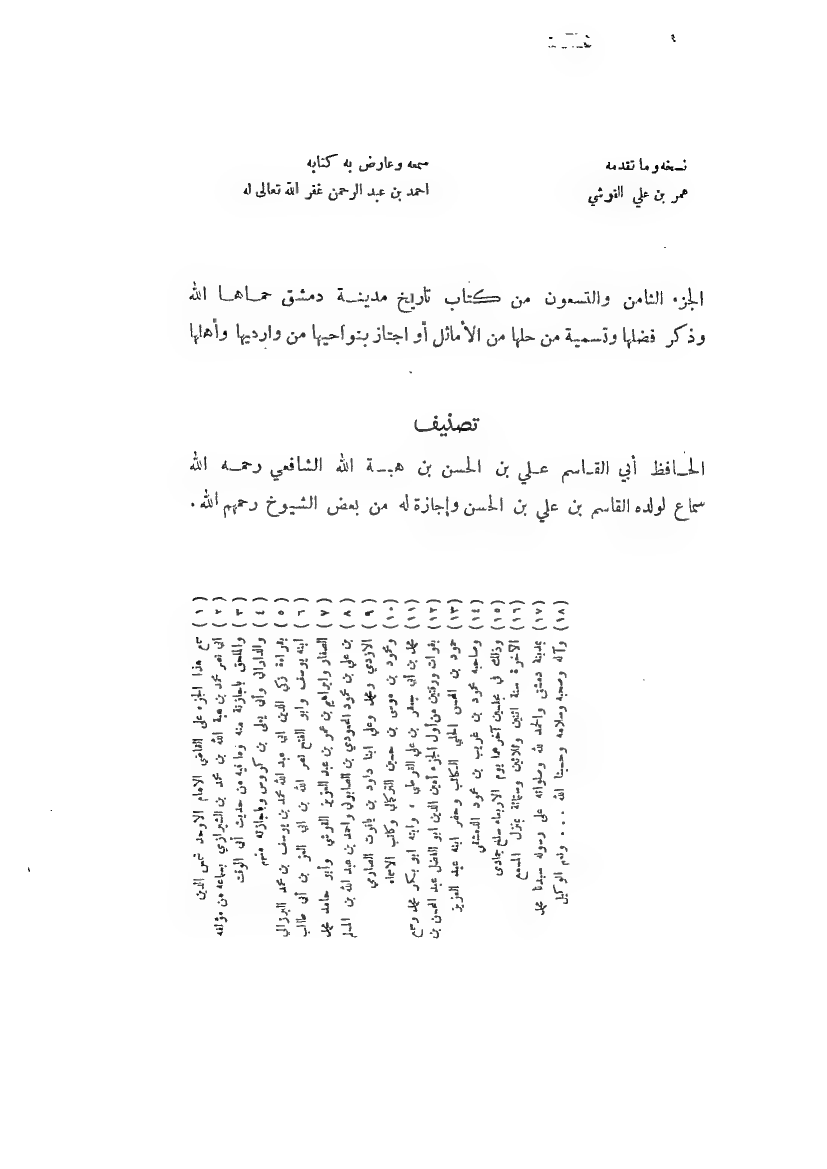 ٤
نسخه وما تقدمه
عمر بن علي القرشي
سمعه وعارض به كتابه
احمد بن عبد الرحمن غفر الله تعالى له
الجزء الثامن والتسعون من كتاب تاريخ مدينة دمشق حماها الله
وذكر فضلها وتسمية من حلها من الأماثل أو اجتاز بنواحيها من وارديها وأهلها
تصنيف
الحافظ أبي القاسم علي بن الحسن بن هبة الله الشافعي رحمه الله
سماع لولده القاسم بن علي بن الحسن وإجازة له من بعض الشيوخ رحمهم الله.
(١) سمع هذا الجزء على القاضي الامام الاوحد شمس الدين
(٢) أبي نصر محمد بن هبة الله بن محمد بن الشيرازي بسماعه من مؤلفه
(٣) والملحق بإجازته منه وما فيه من حديث أبي الوقت
(٤) والداراني وأبي يعلى بن كروس وبإجازته منهم
(٥) بقراءة زكي الدين أبي عبد الله محمد بن يوسف بن محمد البرزالي
(٦) ابنه يوسف وابو الفتح نصر الله بن ابي العز بن أبي طالب
(٧) الصفار وابراهيم بن عمر بن عبد العزيز القرشي وأبو حامد محمد
(٨) بن علي بن محمود المحمودي بن الصابوني واحمد بن عبد الله بن المسلم
(٩) الازدي ومحمد وعلي ابنا داود بن ياقوت الصارمي
(١٠) ومحمود بن موسى بن حسين التركماني وكاتب الاسماء
(١١) محمد بن أبي جعفر بن علي القرطبي، وابنه ابو بكر محمد وسمع
(١٢) بفوات ورقتين من أول الجزء أمين الدين ابو الفضل عبد المحسن بن
(١٣) حمود بن المحسن الحلبي الكاتب وحضر ابنه عبد العزيز
(١٤) وصاحبه محمود بن غريب بن محمود الدمشقي
(١٥) وذلك في مجلسين آخرهما يوم الاربعاء سلخ جمادى
(١٦) الآخرة سنة اثنين وثلاثين وستمائة بمنزل المسمع
(١٧) بمدينة دمشق والحمد لله وصلواته على رسوله سيدنا محمد
(١٨) وآله وصحبه وسلامه وحسبنا الله ... ونعم الوكيل